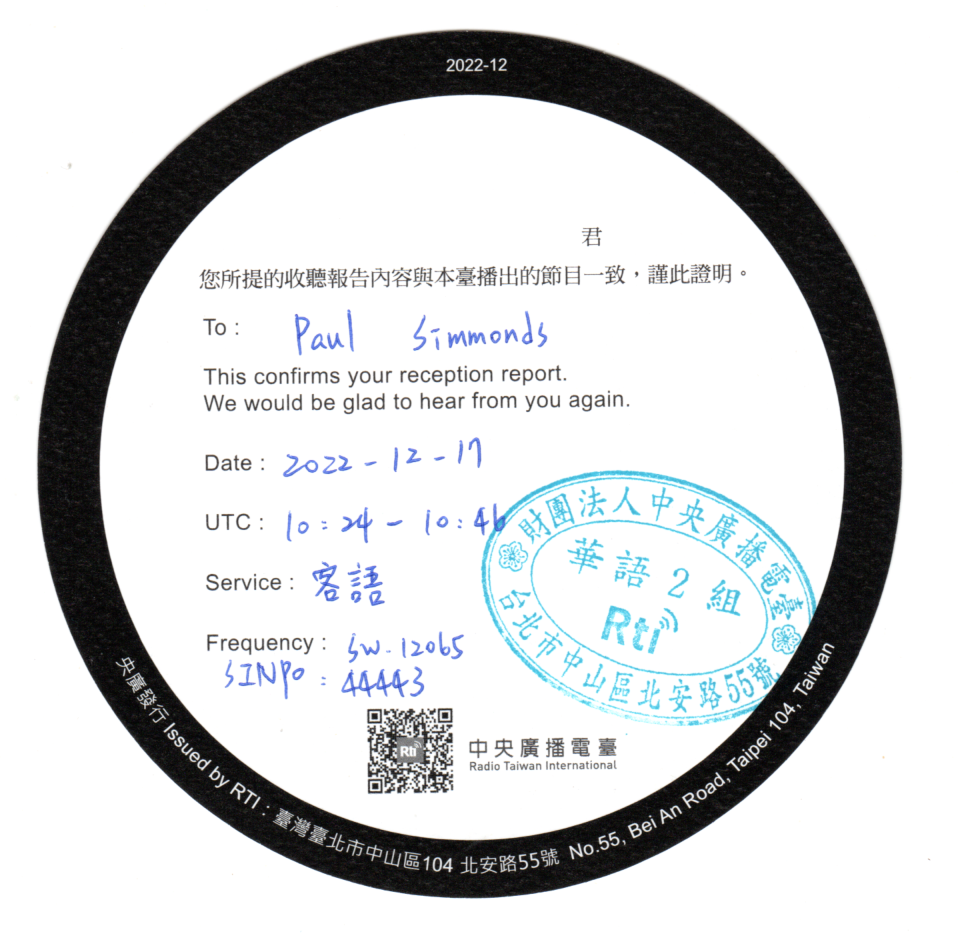 2022-12
君
您所提的收聽報告內容與本臺播出的節目一致，謹此證明。
To : Paul Simmonds
This confirms your reception report.
We would be glad to hear from you again.
Date : 2022-12-17
UTC : 10:24-10:46
Service : 客語
Frequency : SW-12065
SINPO : 44443
財團法人中央廣播電臺
華語2組
Rti
台北市中山區北安路55號
Rti
中央廣播電臺
Radio Taiwan International
央廣發行 Issued by RTI : 臺灣臺北市中山區104 北安路55號 No.55, Bei An Road, Taipei 104, Taiwan